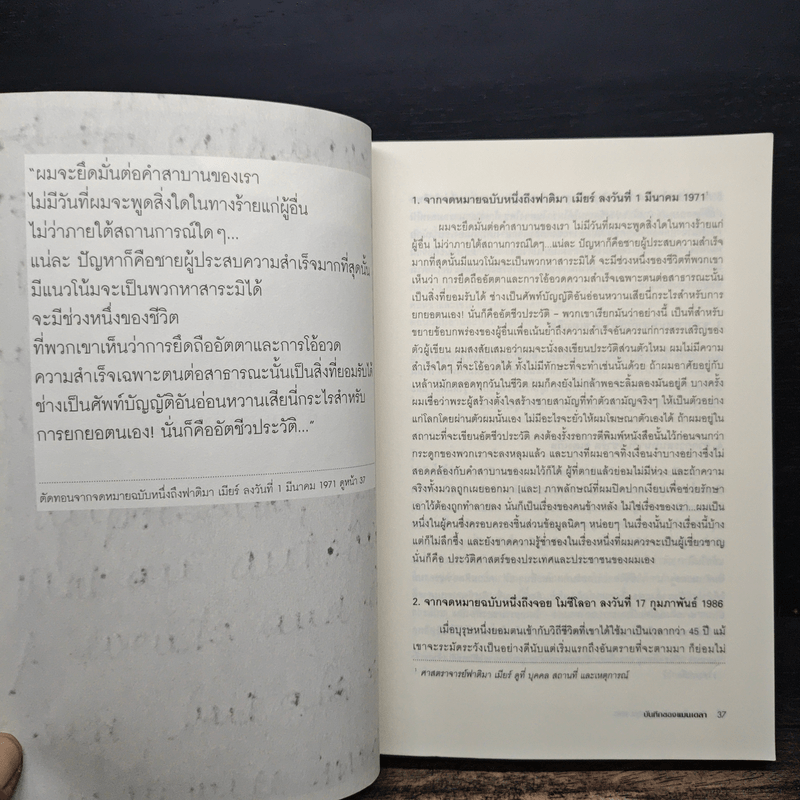 "ผมจะยึดมั่นต่อคำสาบานของเรา
ไม่มีวันที่ผมจะพูดสิ่งใดในทางร้ายแก่ผู้อื่น
ไม่ว่าภายใต้สถานการณ์ใดๆ...
แน่ละ ปัญหาก็คือชายผู้ประสบความสำเร็จมากที่สุดนั้น
มีแนวโน้มจะเป็นพวกหาสาระมิได้
จะมีช่วงหนึ่งของชีวิต
ที่พวกเขาเห็นว่าการยึดถืออัตตาและการโอ้อวด
ความสำเร็จเฉพาะตนต่อสาธารณะนั้นเป็นสิ่งที่ยอมรับได้
ช่างเป็นศัพท์บัญญัติอันอ่อนหวานเสียนี่กระไรสำหรับ
การยกยอตนเอง! นั่นก็คืออัตชีวประวัติ..."
ตัดทอนจากจดหมายฉบับหนึ่งถึงฟาติมา เมียร์ ลงวันที่ 1 มีนาคม 1971 ดูหน้า 37
1. จากจดหมายฉบับหนึ่งถึงฟาติมา เมียร์ ลงวันที่ 1 มีนาคม 1971¹
ผมจะยึดมั่นต่อคำสาบานของเรา ไม่มีวันที่ผมจะพูดสิ่งใดในทางร้ายแก่
ผู้อื่น ไม่ว่าภายใต้สถานการณ์ใดๆ...แน่ละ ปัญหาก็คือชายผู้ประสบความสำเร็จ
มากที่สุดนั้นมีแนวโน้มจะเป็นพวกหาสาระมิได้ จะมีช่วงหนึ่งของชีวิตที่พวกเขา
เห็นว่า การยึดถืออัตตาและการโอ้อวดความสำเร็จเฉพาะตนต่อสาธารณะนั้น
เป็นสิ่งที่ยอมรับได้ ช่างเป็นศัพท์บัญญัติอันอ่อนหวานเสียนี่กระไรสำหรับการ
ยกยอตนเอง! นั่นก็คืออัตชีวประวัติ – พวกเขาเรียกมันว่าอย่างนี้ เป็นที่สำหรับ
ขยายข้อบกพร่องของผู้อื่นเพื่อเน้นย้ำถึงความสำเร็จอันควรแก่การสรรเสริญของ
ตัวผู้เขียน ผมสงสัยเสมอว่าผมจะนั่งลงเขียนประวัติส่วนตัวไหม ผมไม่มีความ
สำเร็จใดๆ ที่จะโอ้อวดได้ ทั้งไม่มีทักษะที่จะทำเช่นนั้นด้วย ถ้าผมอาศัยอยู่กับ
เหล้าหมักตลอดทุกวันในชีวิต ผมก็คงยังไม่กล้าพอจะลิ้มลองมันอยู่ดี บางครั้ง
ผมเชื่อว่าพระผู้สร้างตั้งใจสร้างชายสามัญที่ทำตัวสามัญจริงๆ ให้เป็นตัวอย่าง
แก่โลกโดยผ่านตัวผมนั้นเอง ไม่มีอะไรจะยั่วให้ผมโฆษณาตัวเองได้ ถ้าผมอยู่ใน
สถานะที่จะเขียนอัตชีวประวัติ คงต้องรั้งรอการตีพิมพ์หนังสือนั้นไว้ก่อนจนกว่า
กระดูกของพวกเราจะลงหลุมแล้ว และบางทีผมอาจทิ้งเงื่อนงำบางอย่างซึ่งไม่
สอดคล้องกับคำสาบานของผมไว้ก็ได้ ผู้ที่ตายแล้วย่อมไม่มีห่วง และถ้าความ
จริงทั้งมวลถูกเผยออกมา [และ] ภาพลักษณ์ที่ผมปิดปากเงียบเพื่อช่วยรักษา
เอาไว้ต้องถูกทำลายลง นั่นก็เป็นเรื่องของคนข้างหลัง ไม่ใช่เรื่องของเรา...ผมเป็น
หนึ่งในผู้คนซึ่งครอบครองชิ้นส่วนข้อมูลนิดๆ หน่อยๆ ในเรื่องนั้นบ้างเรื่องนี้บ้าง
แต่ก็ไม่ลึกซึ้ง และยังขาดความรู้ช่ำชองในเรื่องหนึ่งที่ผมควรจะเป็นผู้เชี่ยวชาญ
นั่นก็คือ ประวัติศาสตร์ของประเทศและประชาชนของผมเอง
2. จากจดหมายฉบับหนึ่งถึงจอย โมซีโลอา ลงวันที่ 17 กุมภาพันธ์ 1986
เมื่อบุรุษหนึ่งยอมตนเข้ากับวิถีชีวิตที่เขาได้ใช้มาเป็นเวลากว่า 45 ปี แม้
เขาจะระมัดระวังเป็นอย่างดีนับแต่เริ่มแรกถึงอันตรายที่จะตามมา ก็ย่อมไม่
¹ ศาสตราจารย์ฟาติมา เมียร์ ดูที่ บุคคล สถานที่ และเหตุการณ์
บันทึกของแมนเดลา 37